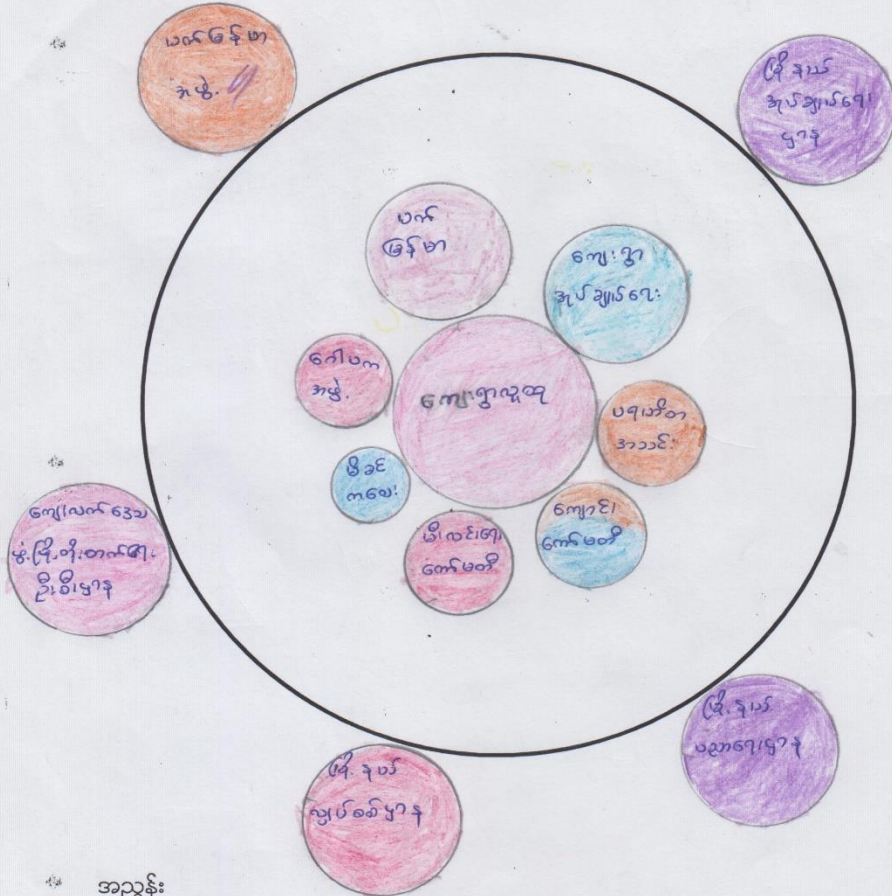 ပက်မြန်မာ
အဖွဲ့
မြို့နယ်
အုပ်ချုပ်ရေး
ဌာန
ပက်
မြန်မာ
ကျေးရွာ
အုပ်ချုပ်ရေး
ဂေါပက
အဖွဲ့
ကျေးရွာလူထု
ပရဟိတ
အသင်း
မိခင်
ကလေး
မီးလင်းရေး
ကော်မတီ
ကျောင်း
ကော်မတီ
ကျေးလက်ဒေသ
ဖွံ့ဖြိုးတိုးတက်ရေး
ဦးစီးဌာန
မြို့နယ်
ပညာရေးဌာန
မြို့နယ်
လျှပ်စစ်ဌာန
အညွှန်း